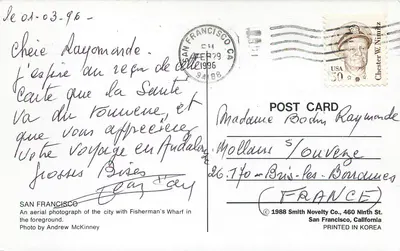 le 01-03-96-
Chère Raymonde.
J'espère au reçu de cette
carte que la Santé
va du nouveau, et
que vous appréciez
votre voyage en Andalousie
grosses Bises
SAN FRANCISCO
An aerial photograph of the city with Fisherman's Wharf in
the foreground.
Photo by Andrew McKinney
SAN FRANCISCO CA
PM
FEB 29
1996
USA
50
Chester W. Nimitz
POST CARD
Madame Bodin Raymonde
Mollans s/ouvèze
26.170 - Buis-les-Baronnies
(FRANCE)
© 1988 Smith Novelty Co., 460 Ninth St.
San Francisco, California 94103
PRINTED IN KOREA